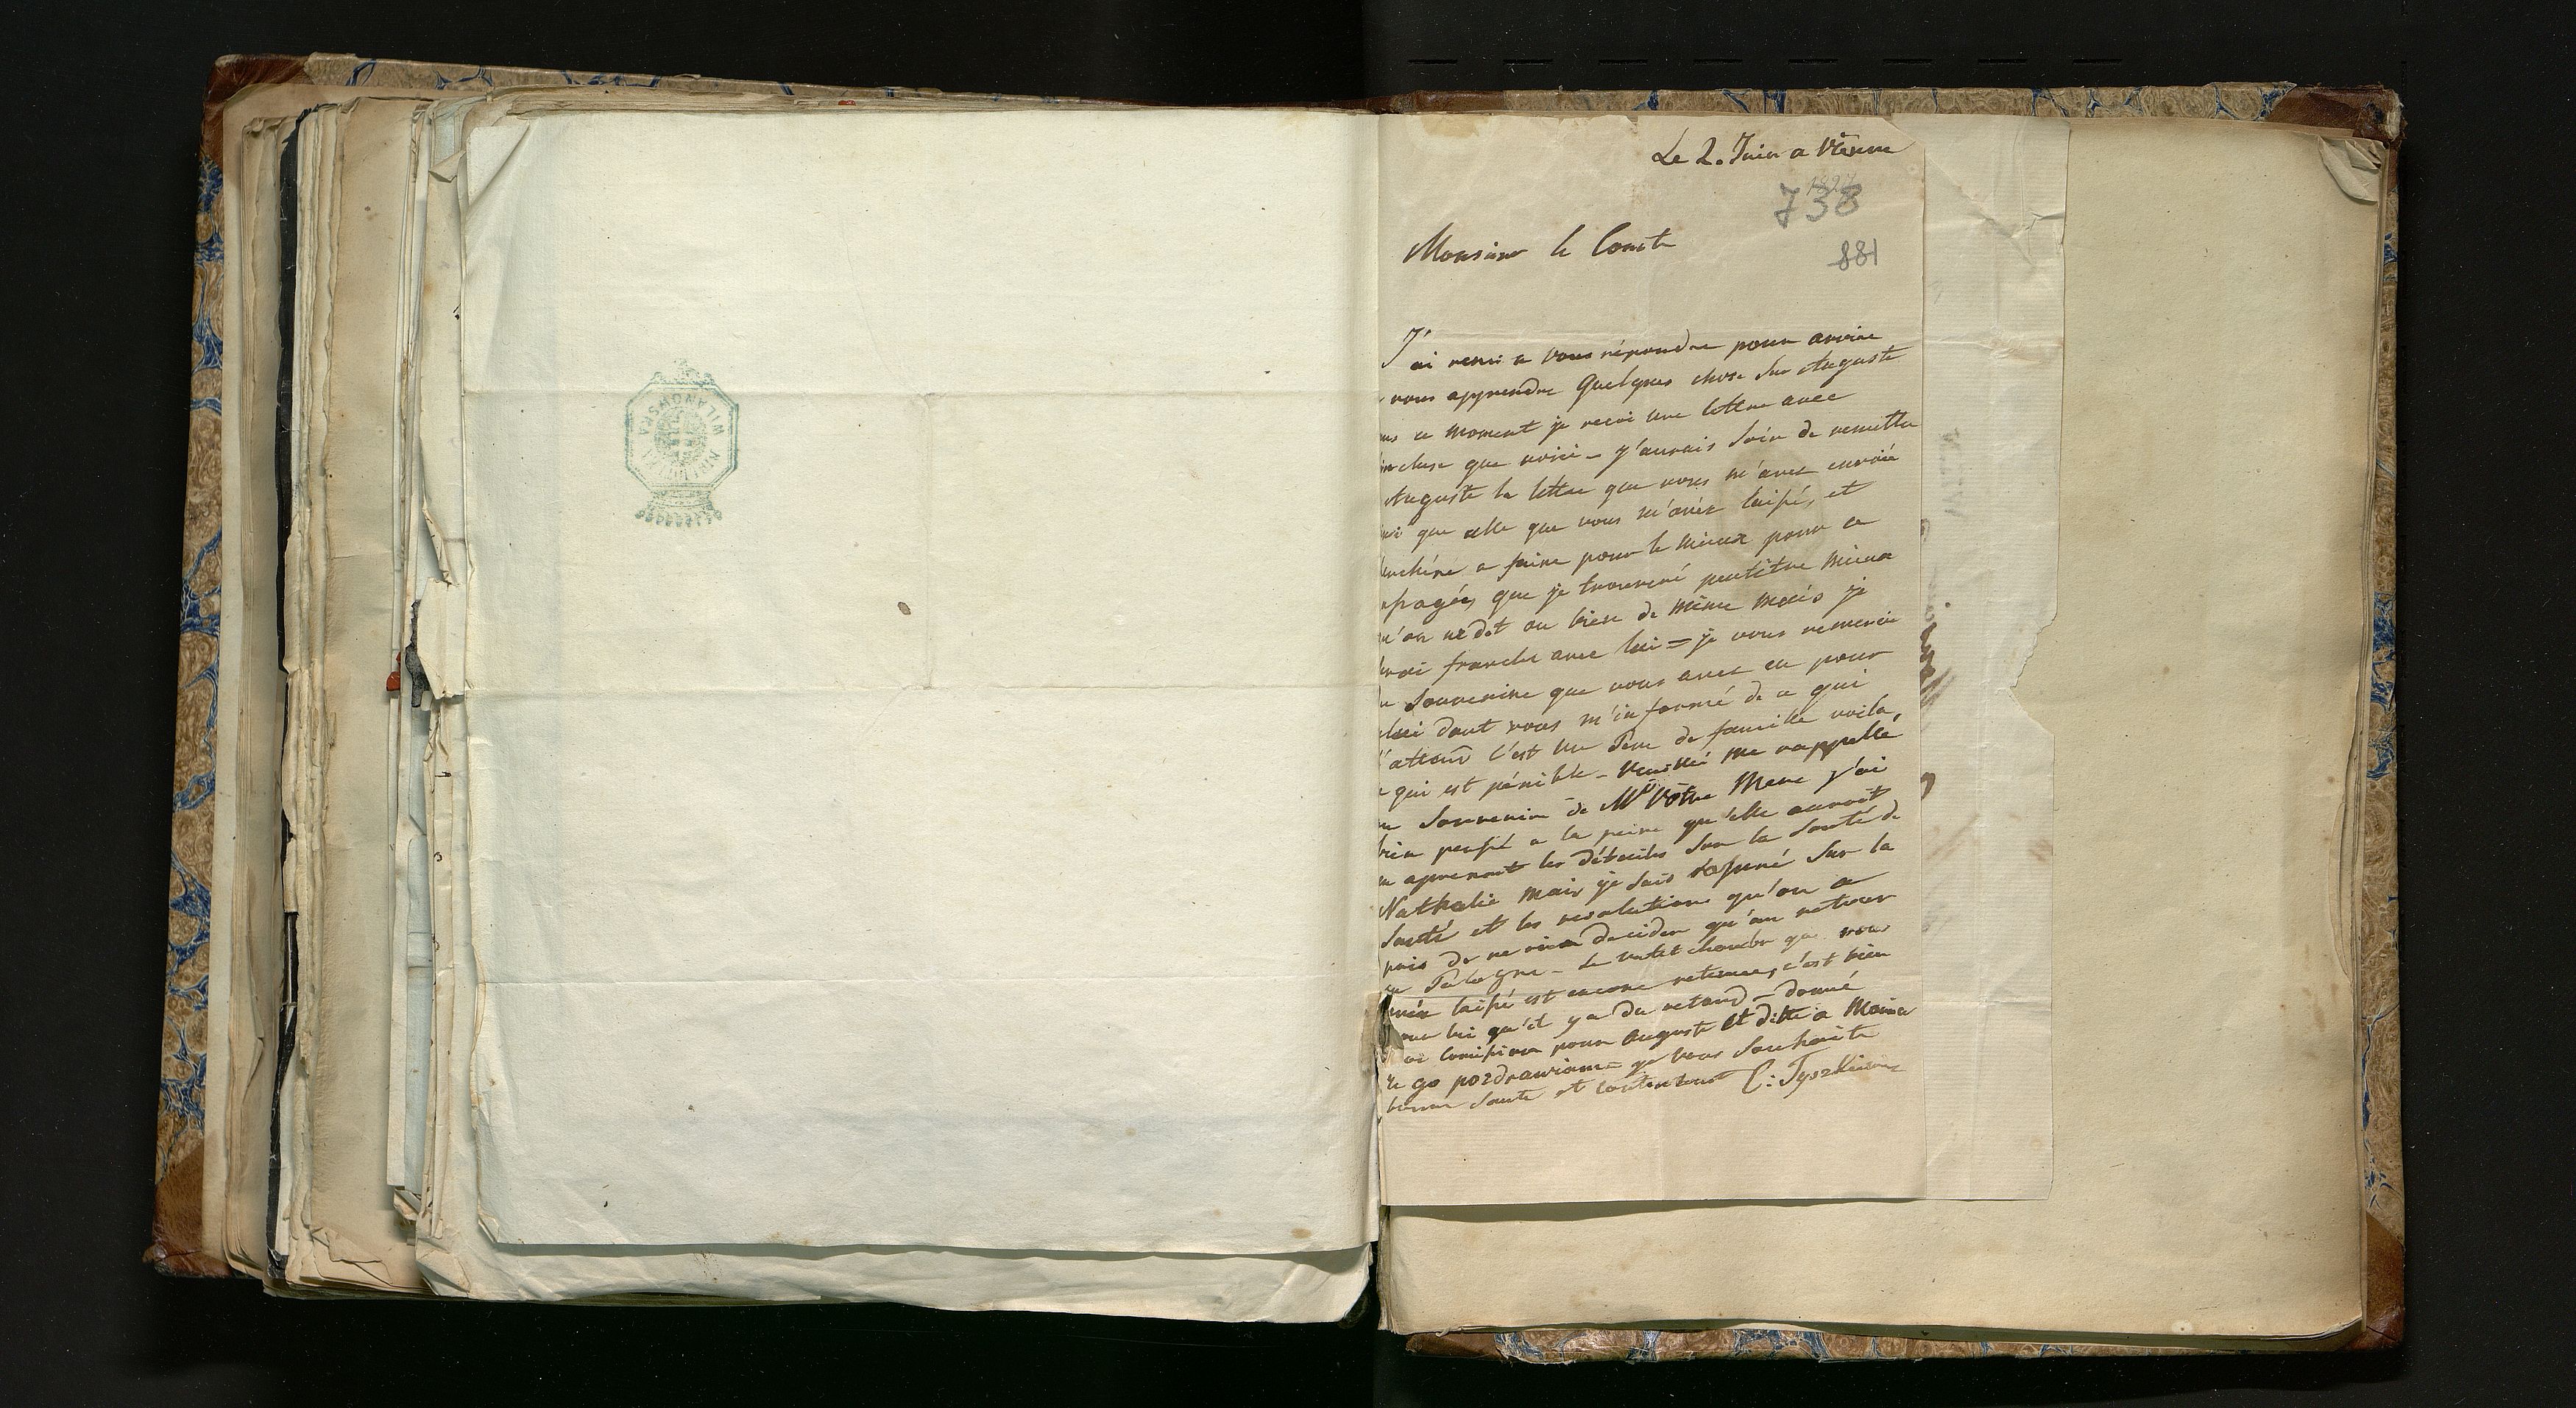 BIBLIOTEKA WILANOWSKA
Le 2. Juin a Vienne
1827
738
881
Monsieur le Comte
J'ai remi a vous répondre pour avoire
vous apprendre Quelques chose sur Auguste
ce moment je recoi une lettre avec
incluse que voici – j'aurais soin de remettre
Auguste la lettre que vous m'avez envoié
que celle que vous m'avéz laissé, et
a faire pour le mieux pour ce
que je trouveré peutêtre mieux
qu'on ne dit ou bien de même mais je
franche avec lui = je vous remercie
souvenire que vous avez eu pour
dont vous m'informé de ce qui
l'attend c'est un Pere de famille voila,
qui est pénible – Veuillé me rappellé
souvenir de Md Votre Mere j'ai
bien pensé a la peine qu'elle auroit
aprenant les détailes sur la santé de
Nathalie mais je suis rassuré sur la
santé et les resolutions qu'on a
pris de ne rien decider qu'au retour
en Pologne – Le valet chambr que vous
avéz laissé est encore retenue, c'est bien
lui qu'il y a du retard – donné
comission pour Auguste et ditte a Maina
ze go pozdrawiam = je vous souhaite
bonne sante et contentement C: Tyszkiewicz